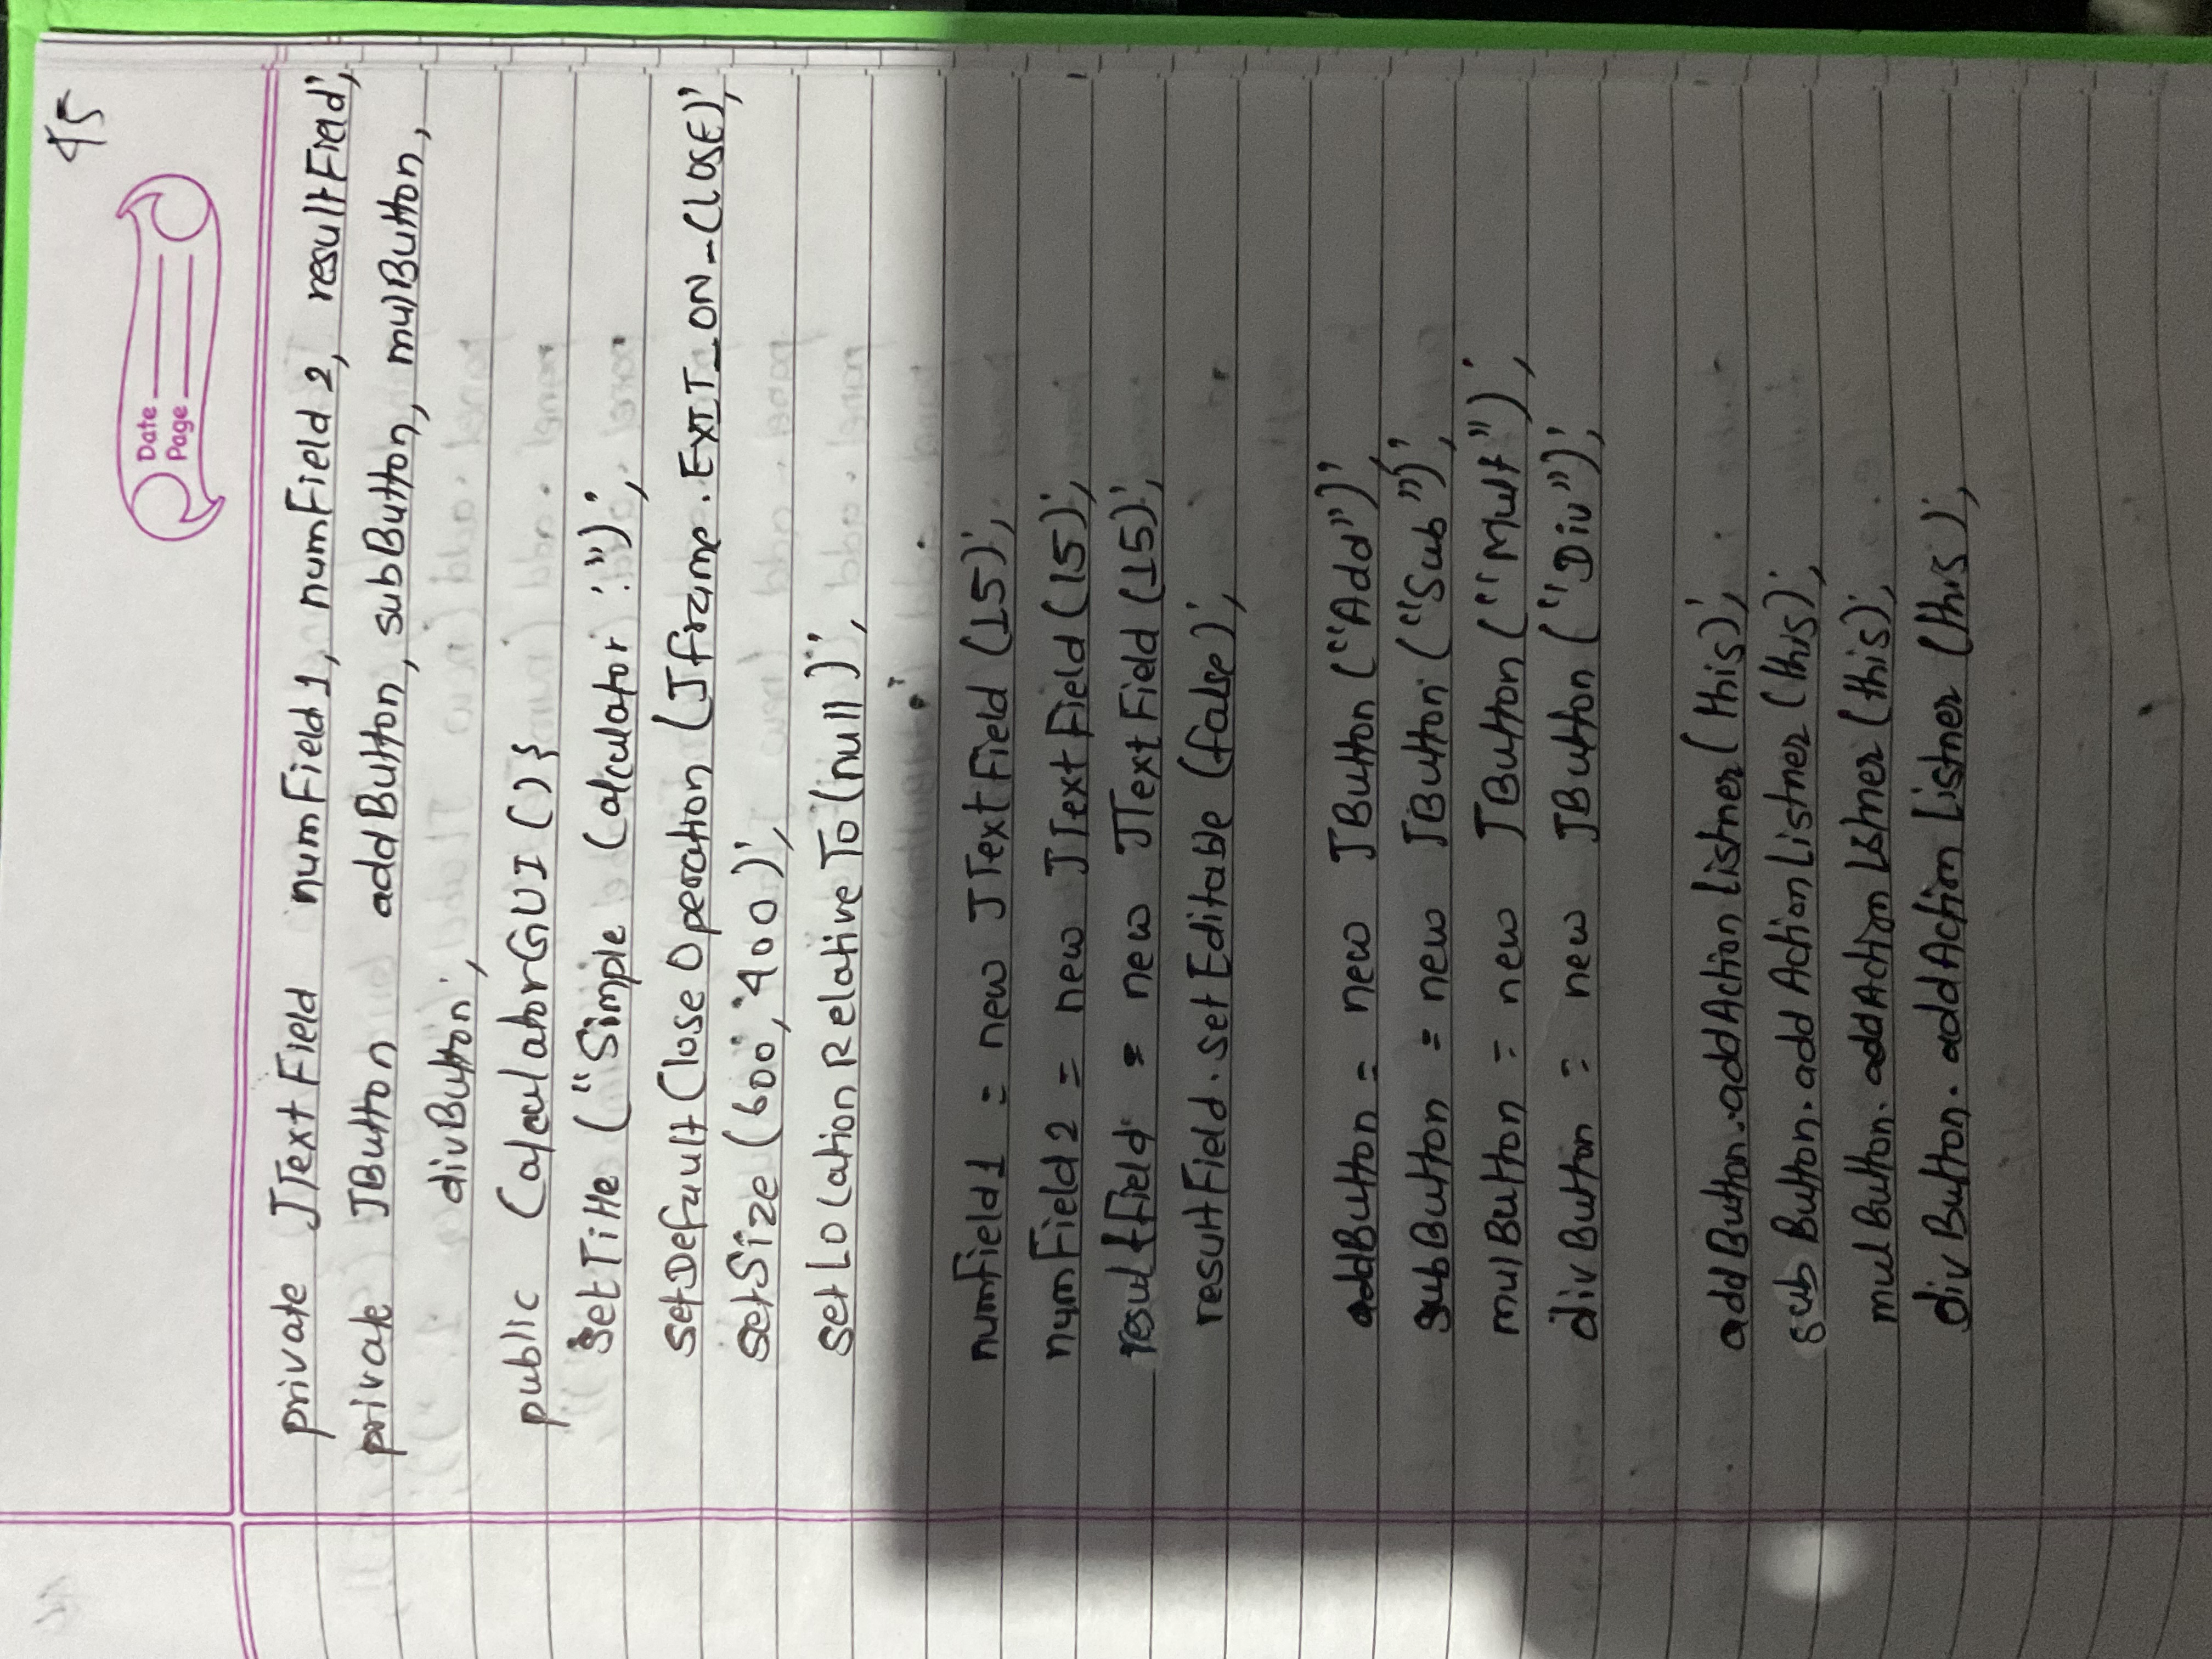 45
Date
Page
private JTextField numField1, numField2, resultField;
private JButton addButton, subButton, mulButton,
divButton;
public CalculatorGUI(){
setTitle ("Simple Calculator :");
setDefaultCloseOperation (Jframe.EXIT_ON_CLOSE);
setSize (600, 400);
setLocationRelativeTo(null);
numField1 = new JTextField (15);
numField2 = new JTextField (15);
resultField = new JTextField (15);
resultField.setEditable (false);
addButton = new JButton ("Add");
subButton = new JButton ("Sub");
mulButton = new JButton ("Mult");
divButton = new JButton ("Div");
addButton.addActionListner(this);
subButton.addActionListner (this);
mulButton.addActionListner (this);
divButton.addActionListner (this);